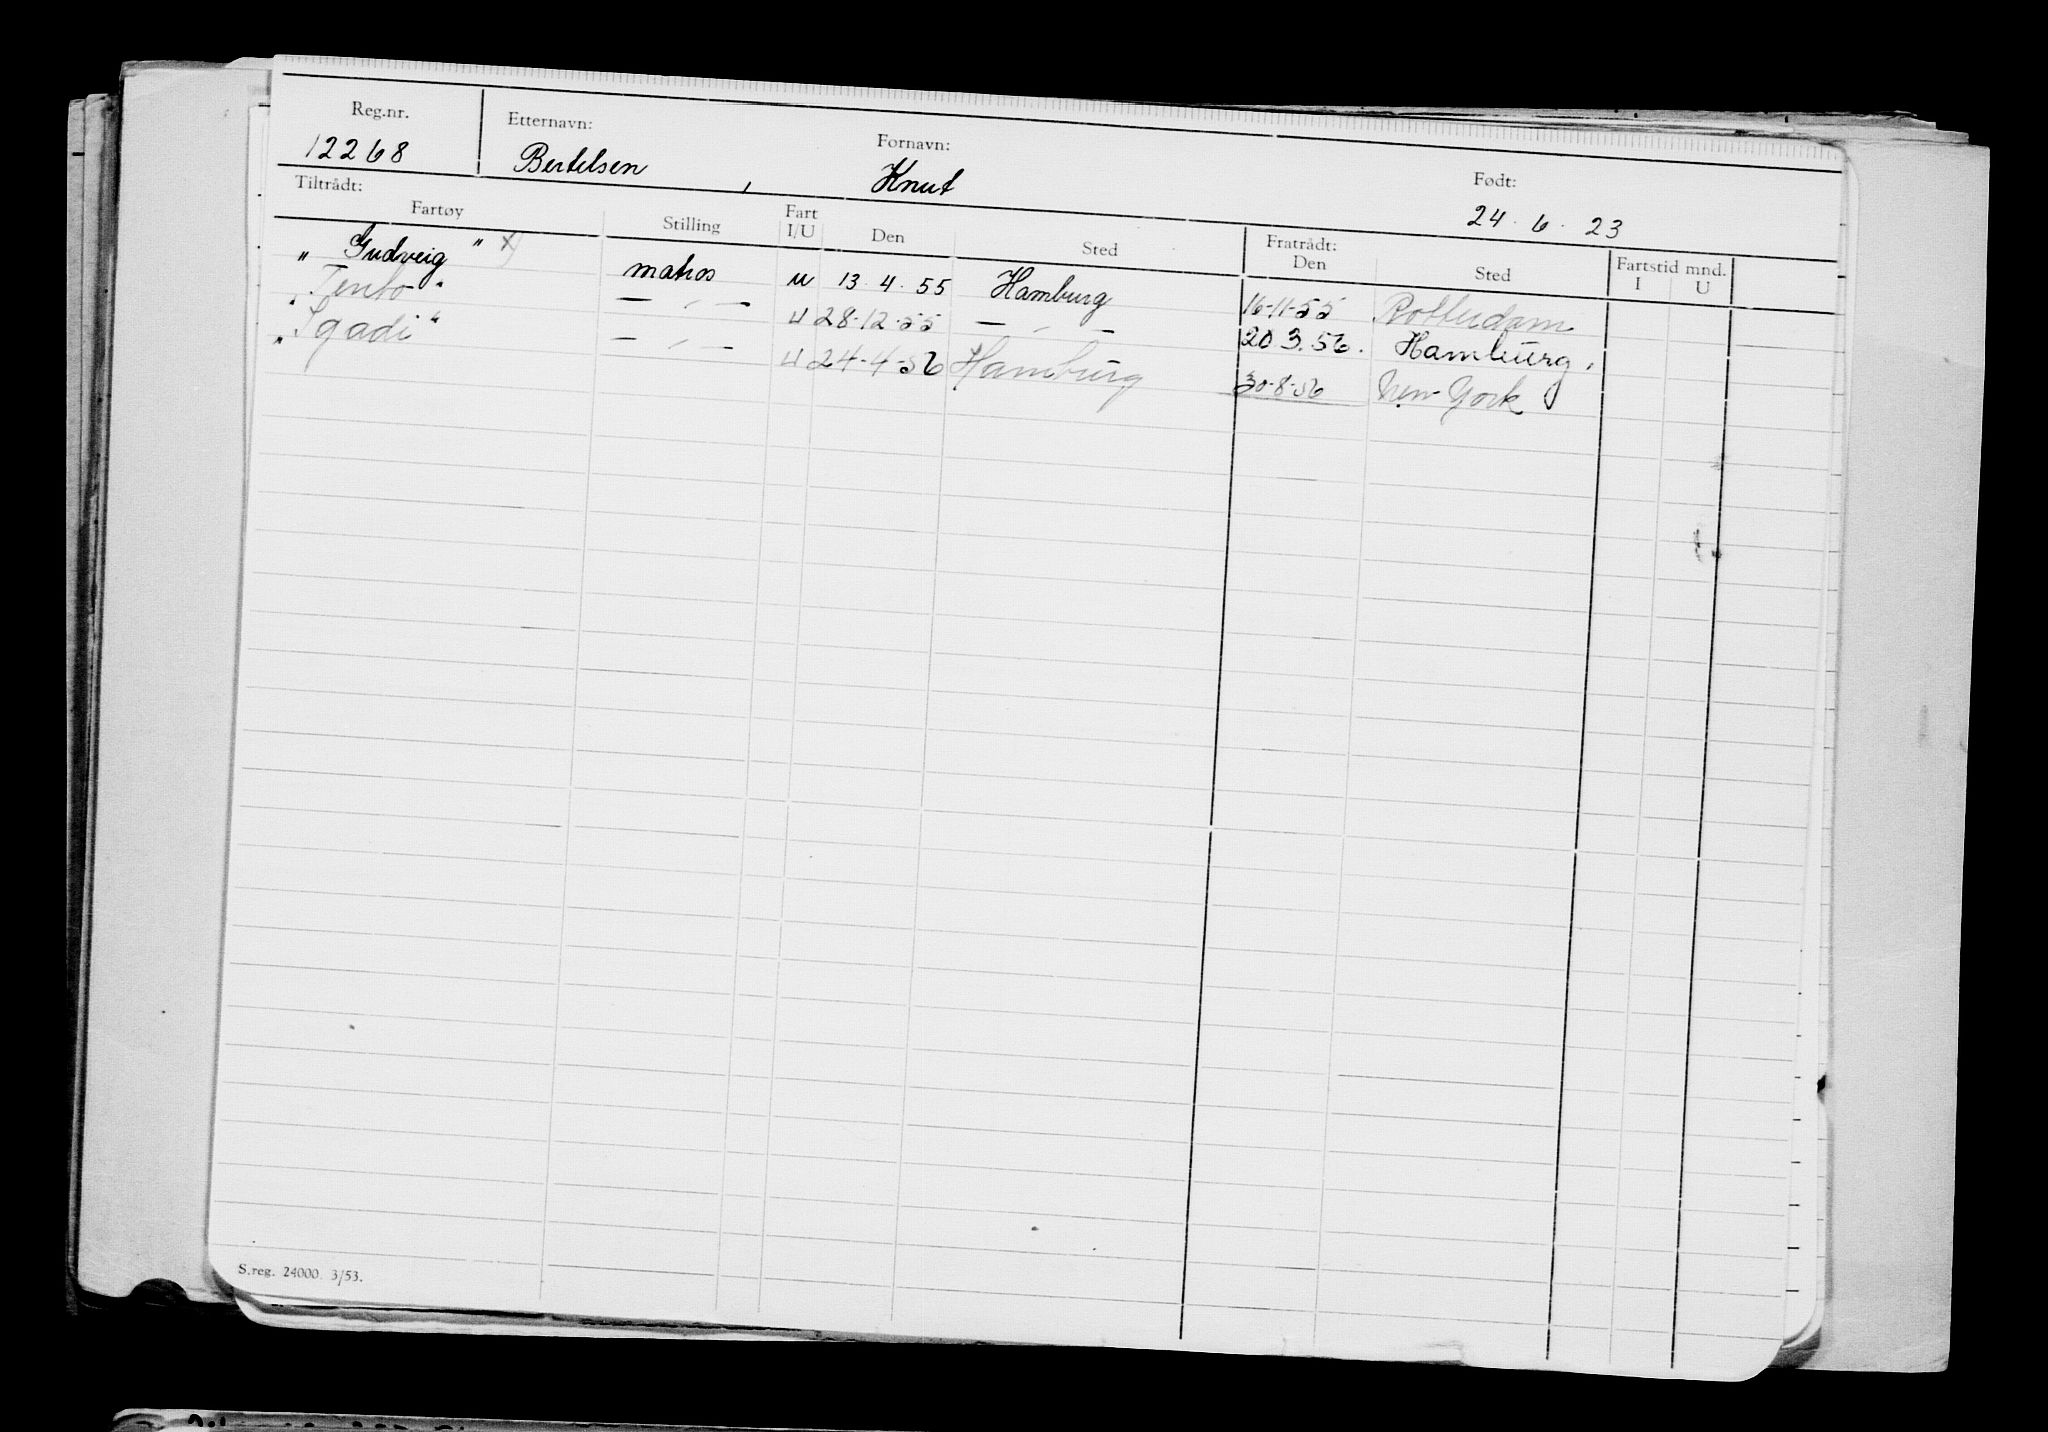 Reg.nr. Etternavn: Fornavn: Født:
12268 Bertelsen, Knut 24. 6. 23
Tiltrådt: Fratrådt:
Fartøy Stilling Fart I/U Den Sted Den Sted Fartstid mnd. I U
„ Gudveig " x) matros u 13. 4. 55 Hamburg 16-11-55 Rotterdam
„ Tento " — „ — U 28-12-55 — „ — 20 3. 56. Hamburg.
„ Igadi " — „ — U 24-4-56 Hamburg 30-8-56 New York
S.reg. 24000. 3/53.